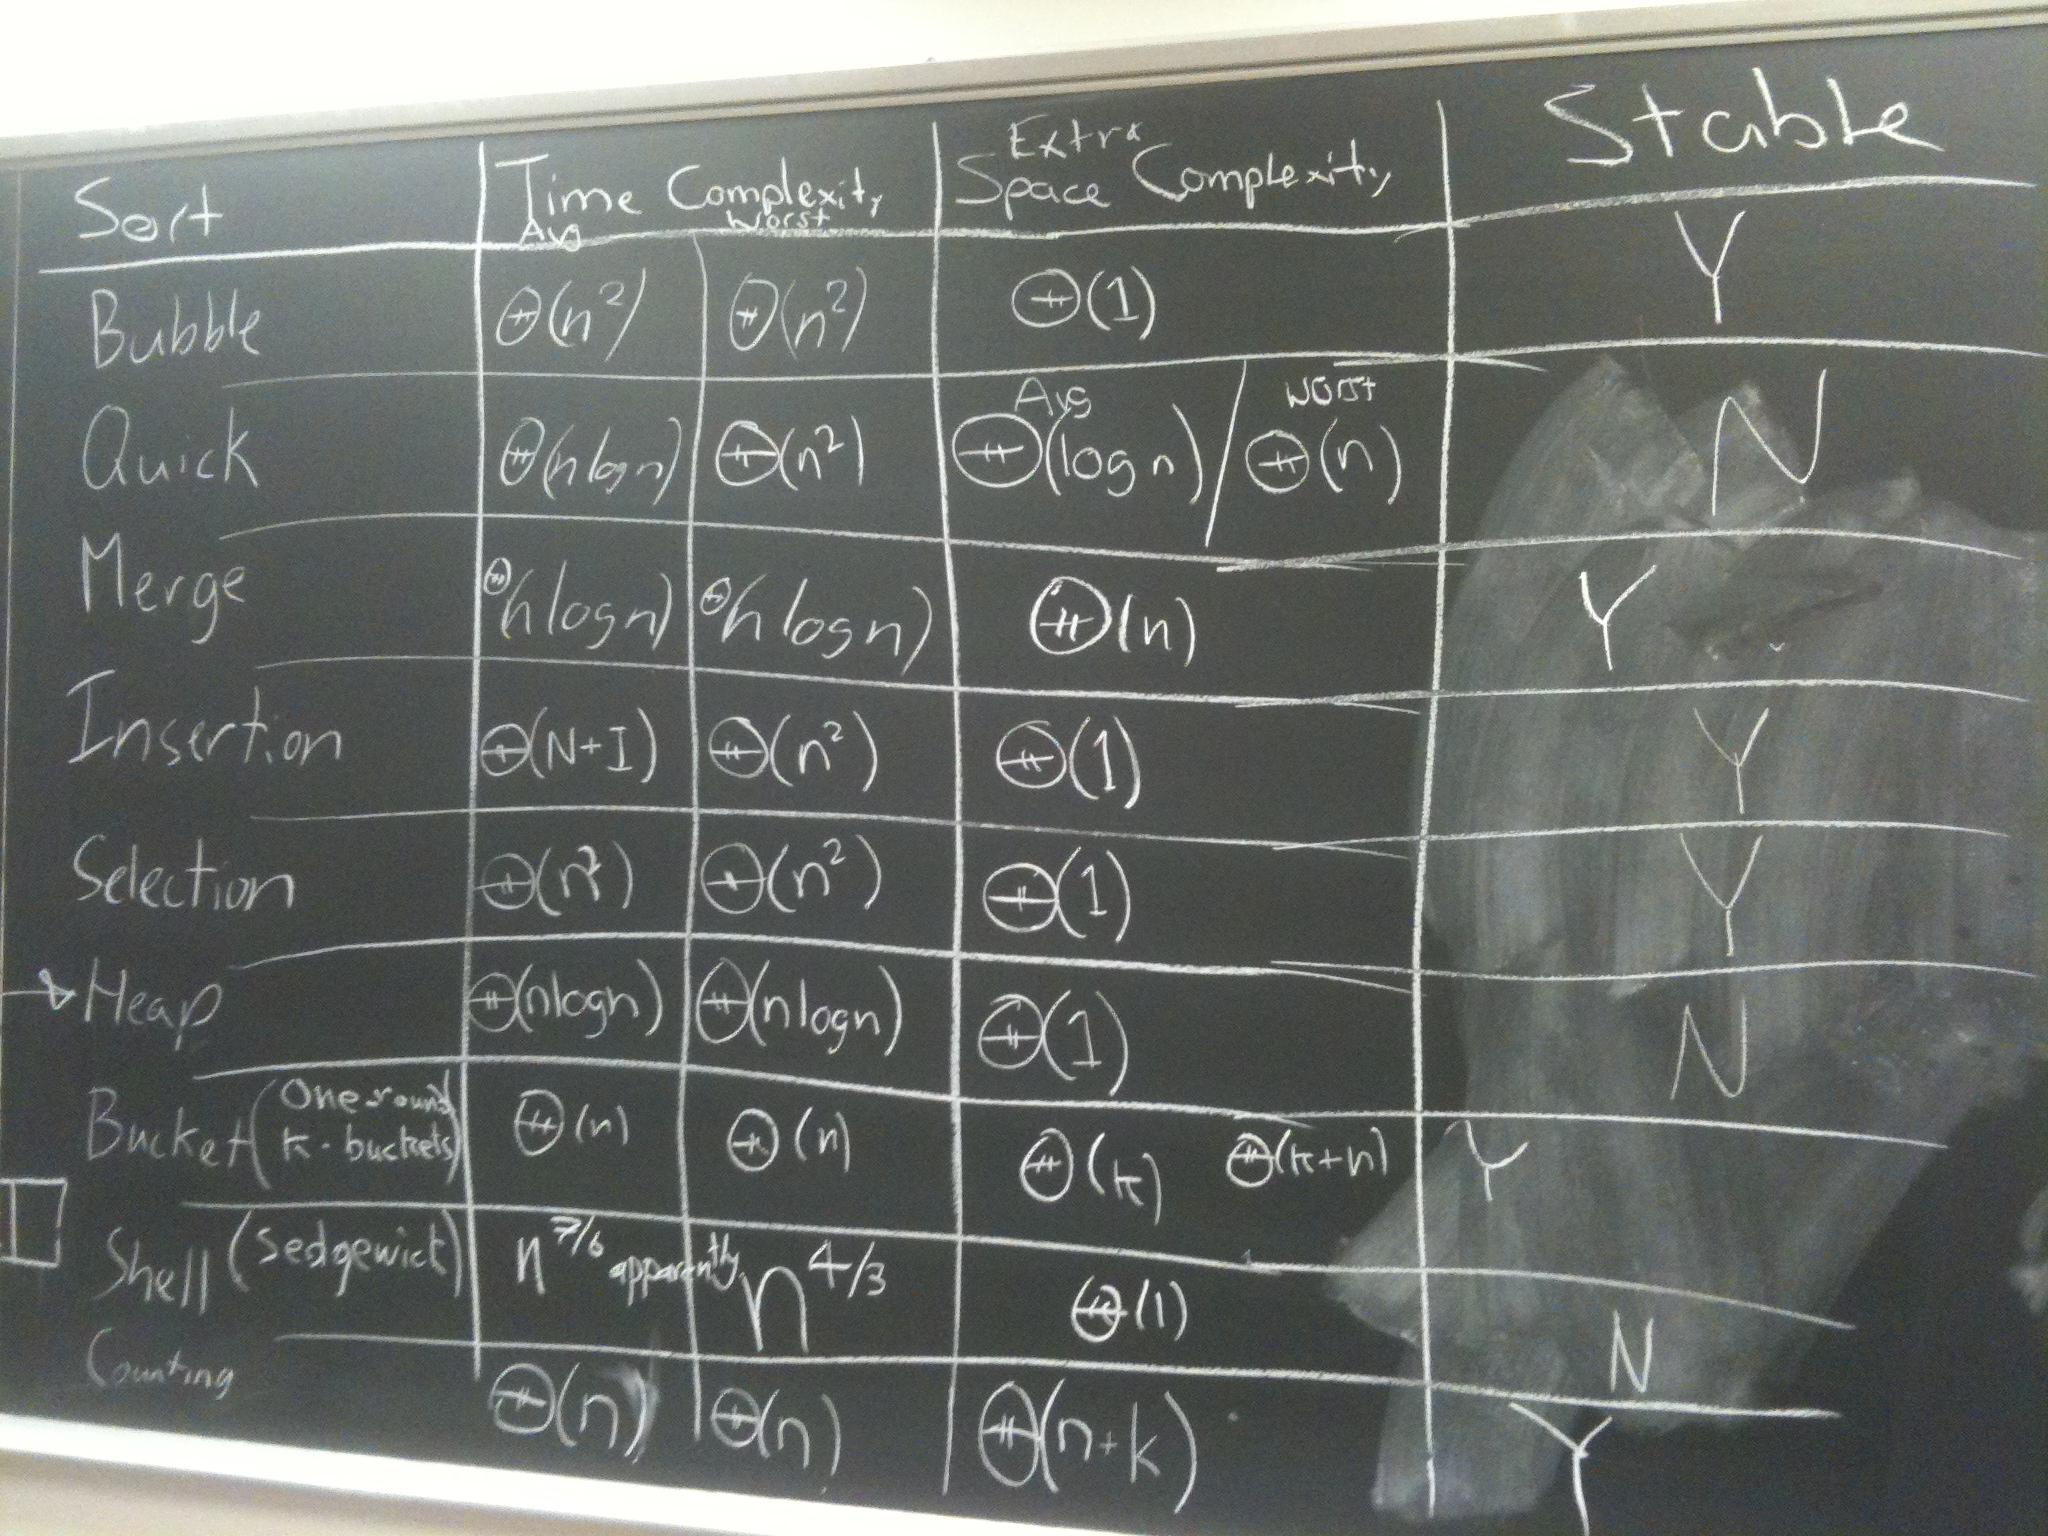 Sort Time Complexity Extra Space Complexity Stable
Avg Worst
Bubble Θ(n²) Θ(n²) Θ(1) Y
Quick Θ(n log n) Θ(n²) Avg Θ(log n) / Worst Θ(n) N
Merge Θ(n log n) Θ(n log n) Θ(n) Y
Insertion Θ(N+I) Θ(n²) Θ(1) Y
Selection Θ(n²) Θ(n²) Θ(1) Y
Heap Θ(n log n) Θ(n log n) Θ(1) N
Bucket (One round k-buckets) Θ(n) Θ(n) Θ(k) Θ(k+n) Y
Shell (Sedgewick) n^7/6 apparently n^4/3 Θ(1) N
Counting Θ(n) Θ(n) Θ(n+k) Y